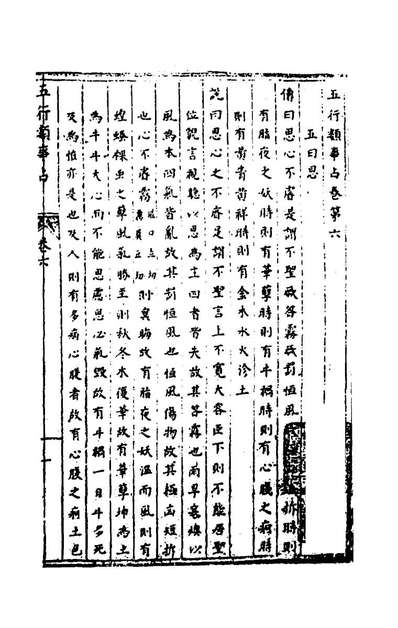 五行類事占卷第六
五曰思
傳曰思心不睿是謂不聖厥咎霧厥罰恒風 折時則
有脂夜之妖時則有華孽時則有牛禍時則有心腹之痾時
則有黃眚黃祥時則有金木水火沴土
說曰思心之不睿是謂不聖言上不寬大容臣下則不能居聖
位貌言視聽以思為主四者皆失故其咎霧也雨旱寒燠以
風為本四氣皆亂故其罰恒風也恒風傷物故其極凶短折
也心不睿霧 則冥晦故有脂夜之妖溫而風則有
螟螣倮虫之孽風氣勝至則秋冬木復華故有華孽坤為土
為牛牛大心而不能思慮思心氣毀故有牛禍一曰牛多死
及為怪亦是也及人則有多病心腹者故有心腹之痾土色
五行類事占
卷六
一